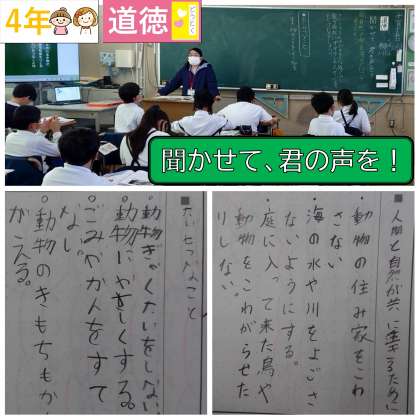 4年
道徳
どうとく
聞かせて、君の声を！
■たいせつなこと
・動物ぎゃくたいをしない。
・動物にやさしくする。
・ごみやかんをすて
ない。
・動物のきもちもか
がえる。
■人間と自然が共に生きるために
・動物の住み家をこわ
さない
海の水や川をよごさ
ないようにする。
庭に入って来た鳥や
動物をこわがらせた
りしない。